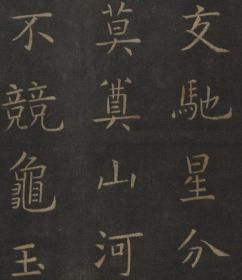 交馳星分
莫奠山河
不競龜玉